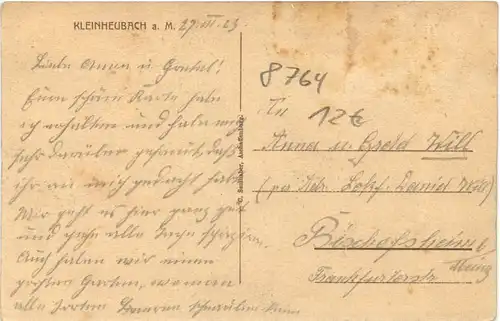 KLEINHEUBACH a. M. 27. III. 23
Liebe Anna u Gretel!
Eure schöne Karte habe
ich erhalten und habe mich
sehr darüber gefreut, daß
ihr an mich gedacht habt.
Mir geht es hier ganz gut
und gehe alle Tage spazieren.
Auch haben wir einen
großen Garten, wo man
alle Sorten
8764
12€
An
Anna u. Greta Will
(per Adr. Daniel Will)
Bischofsheim b. Mainz
Frankfurterstr